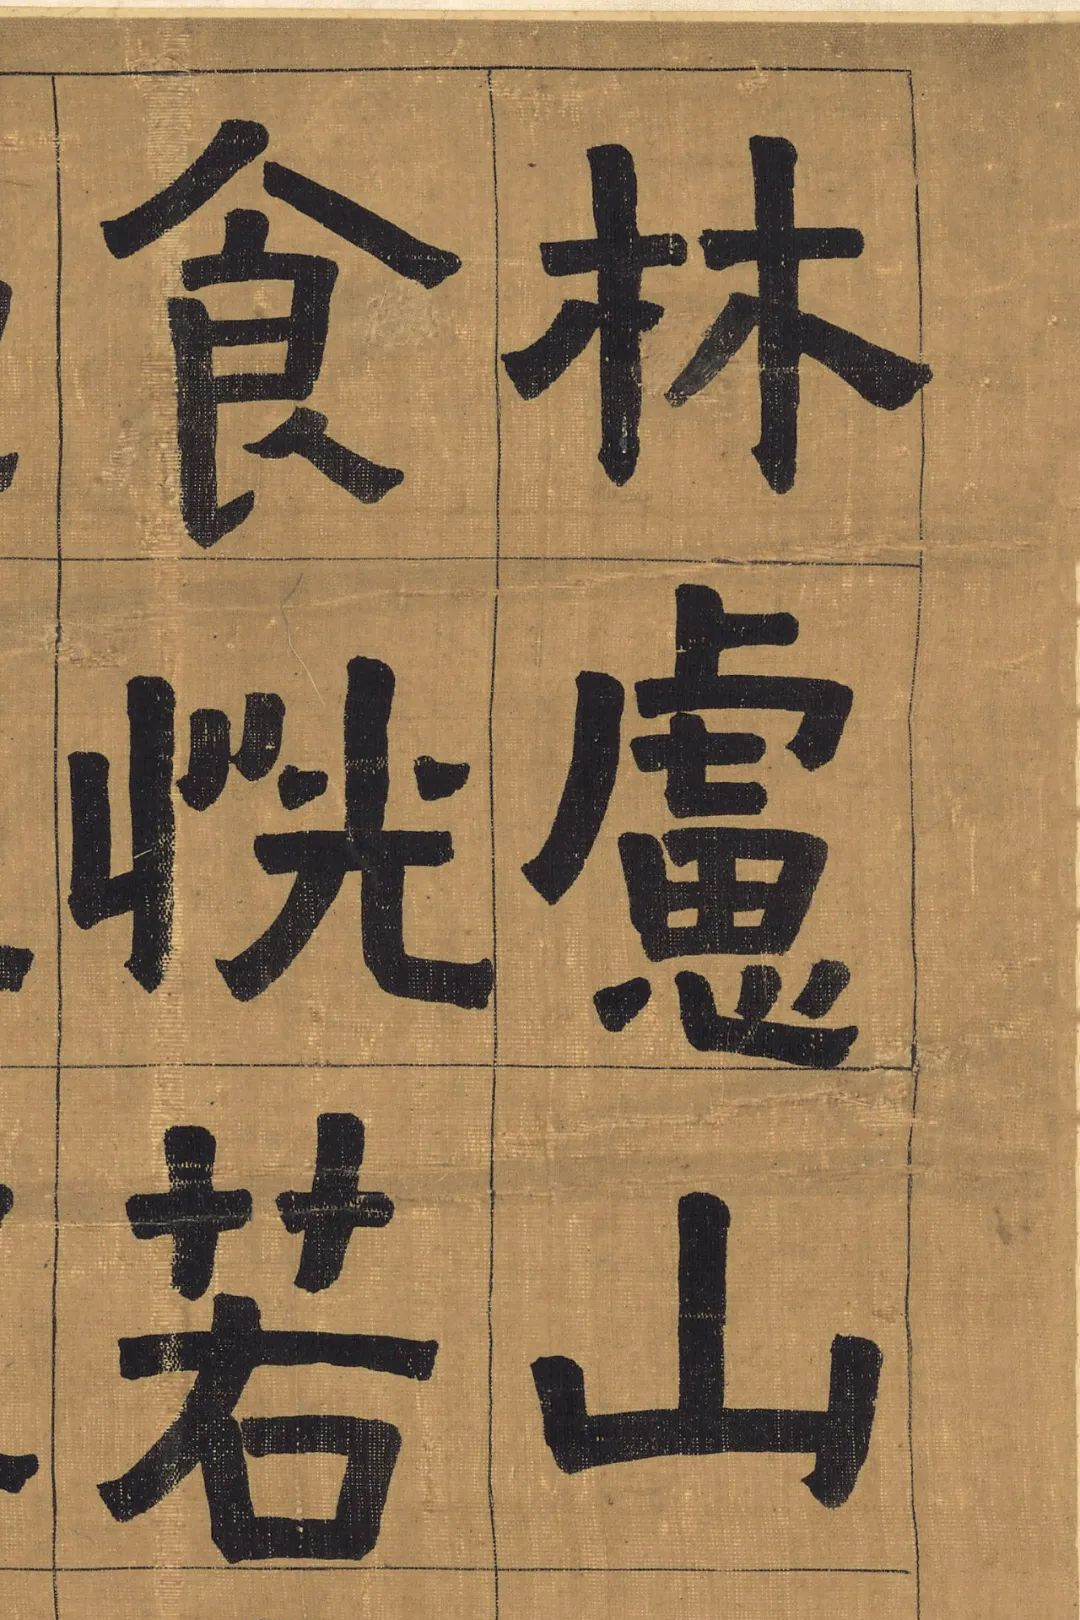 林慮山
食恍若